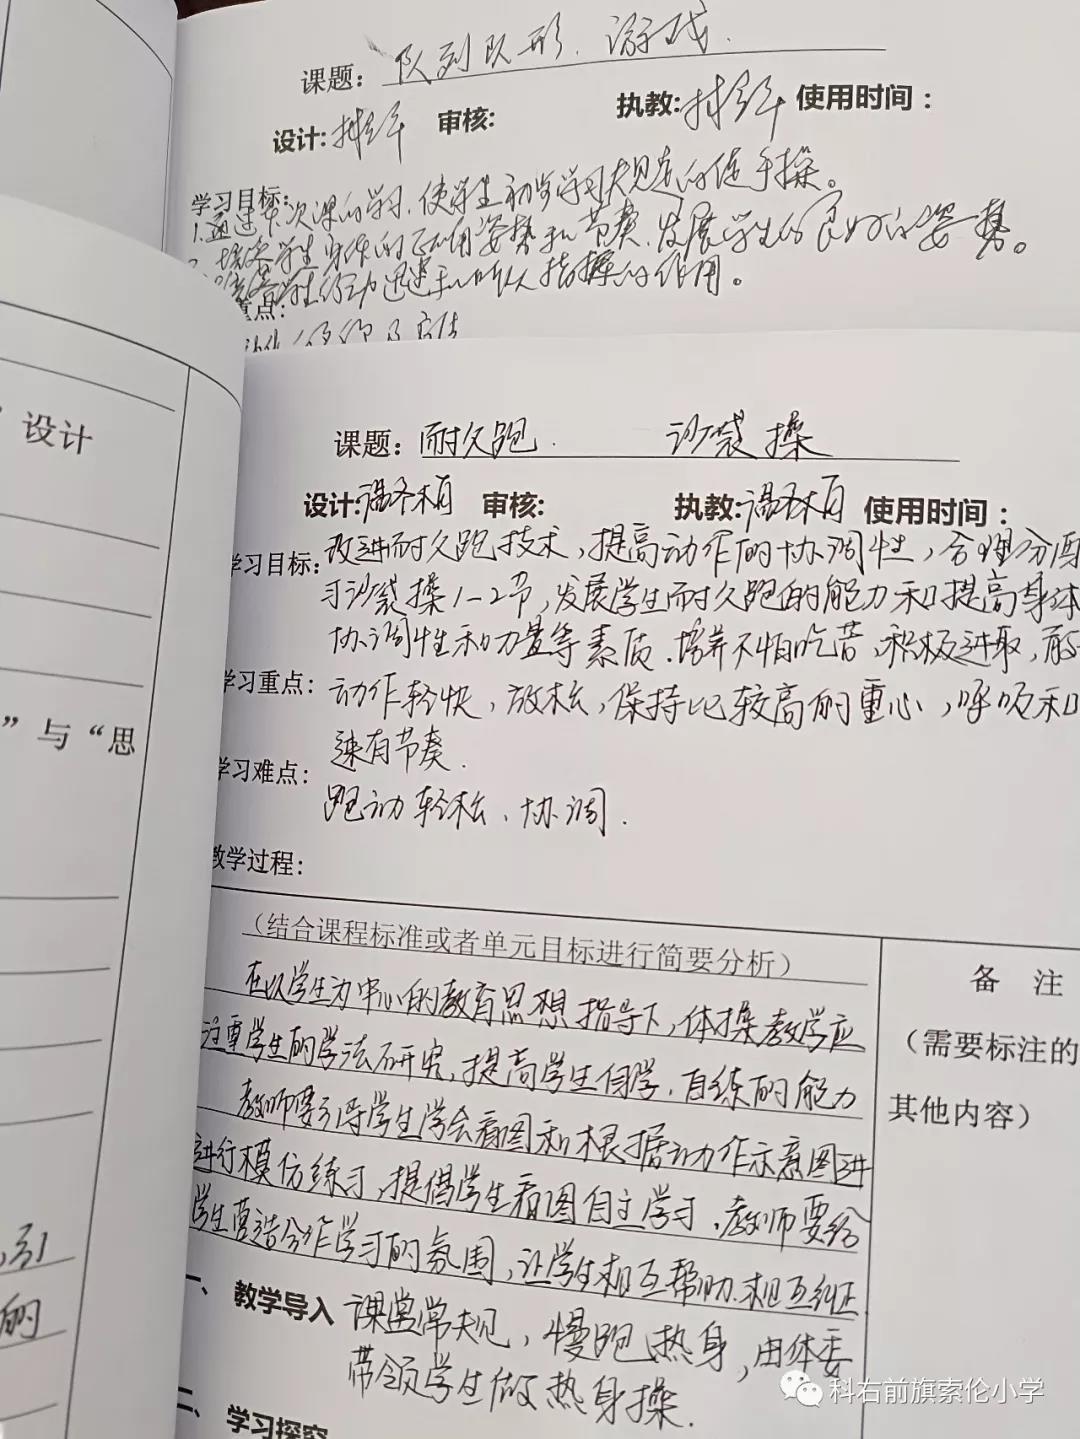 课题：队列队形、游戏.
设计: 审核: 执教: 使用时间：
学习目标：
1.通过本次课的学习，使学生初步学习大见定的徒手操。
学生身体的正确姿势和节奏，发展学生的良好的姿势。
学生行动迅速和听从指挥的作用。
重点：
设计
课题：耐久跑. 沙袋操
设计: 审核: 执教: 使用时间：
学习目标：改进耐久跑技术，提高动作的协调性，合理分配
习沙袋操1-2节，发展学生耐久跑的能力和提高身体
协调性和力量等素质.培养不怕吃苦，积极进取，
学习重点：动作轻快，放松，保持比较高的重心，呼吸和
速有节奏.
学习难点：
跑动轻松、协调.
教学过程：
（结合课程标准或者单元目标进行简要分析）
在以学生为中心的教育思想指导下，体操教学应
注重学生的学法研究，提高学生自学，自练的能力
教师要引导学生学会看图和根据动作示意图进
进行模仿练习，提倡学生看图自主学习，教师要给
学生营造合作学习的氛围，让学生相互帮助.相互纠正
一、 教学导入 课堂常规，慢跑热身，由体委
带领学生做热身操.
二、 学习探究
备 注
（需要标注的
其他内容）
” 与 “思
引
的
科右前旗索伦小学